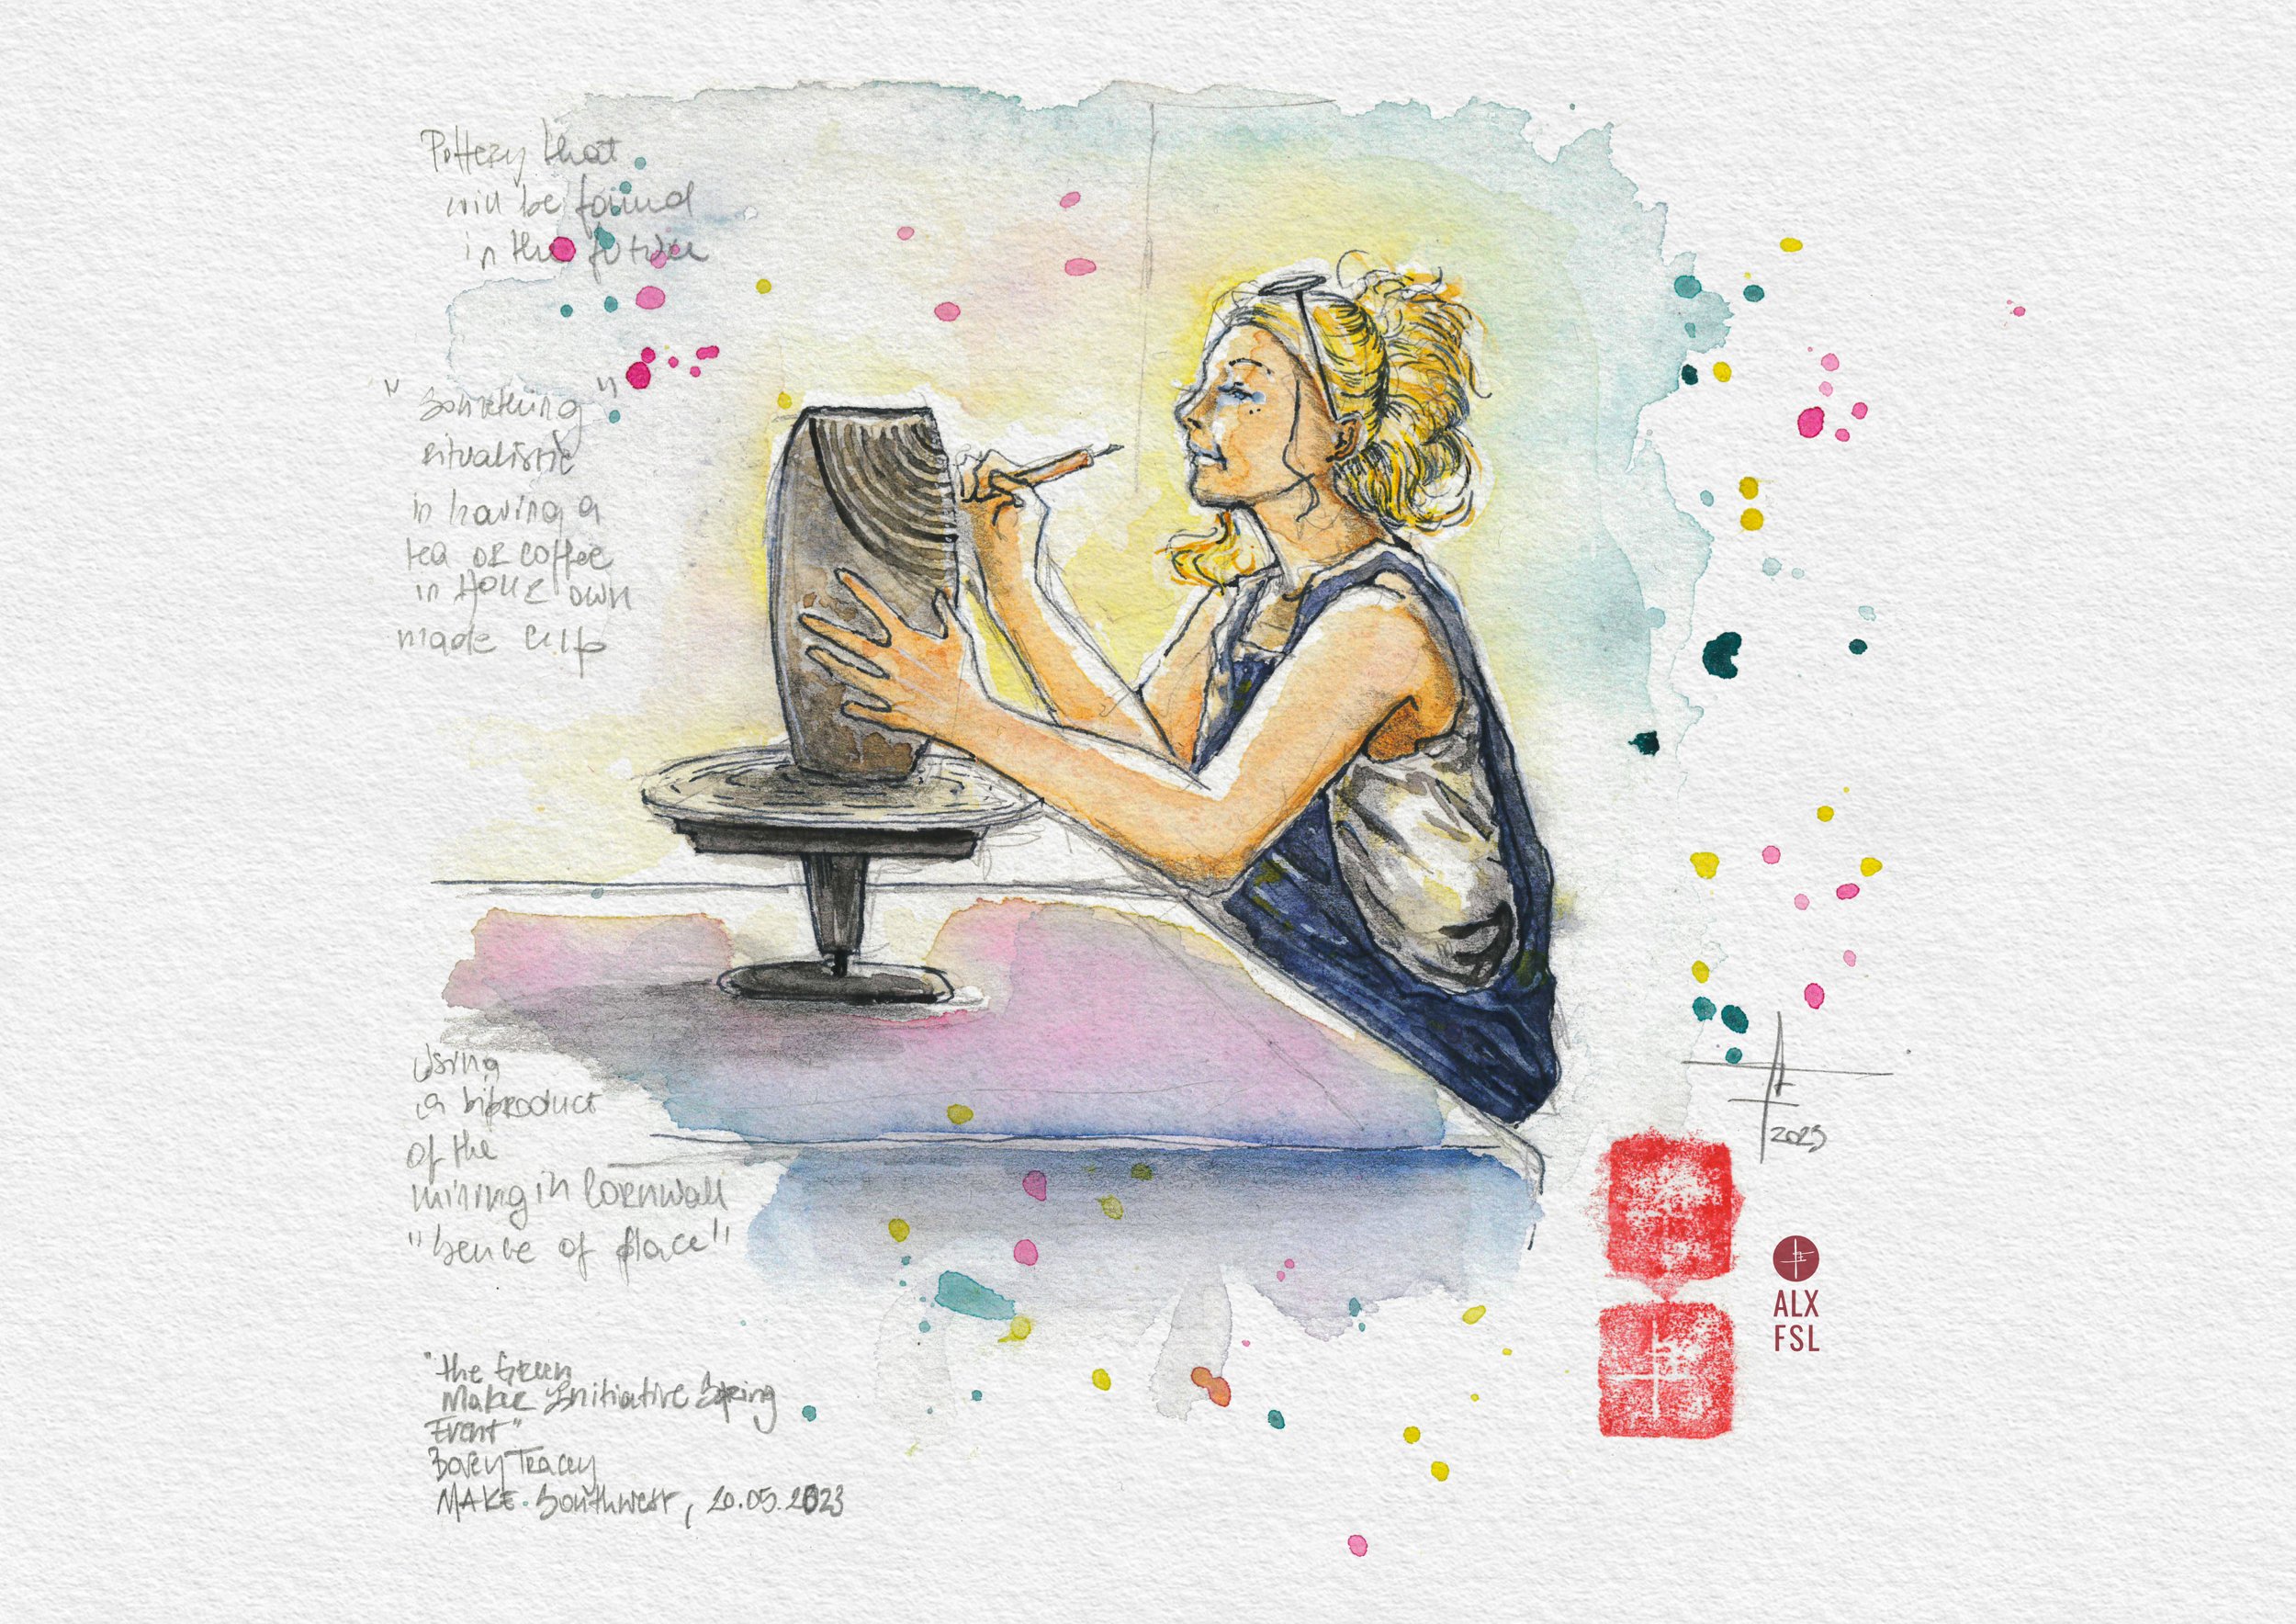 Pottery that
will be found
in the future
"Something"
ritualistic
in having a
tea or coffee
in your own
made cup
Using
a biproduct
of the
mining in Cornwall
"Sence of place"
"The Green
Maker Initiative Spring
Event"
Bovey Tracey
MAKE Southwest, 20.05.2023
2023
ALX
FSL